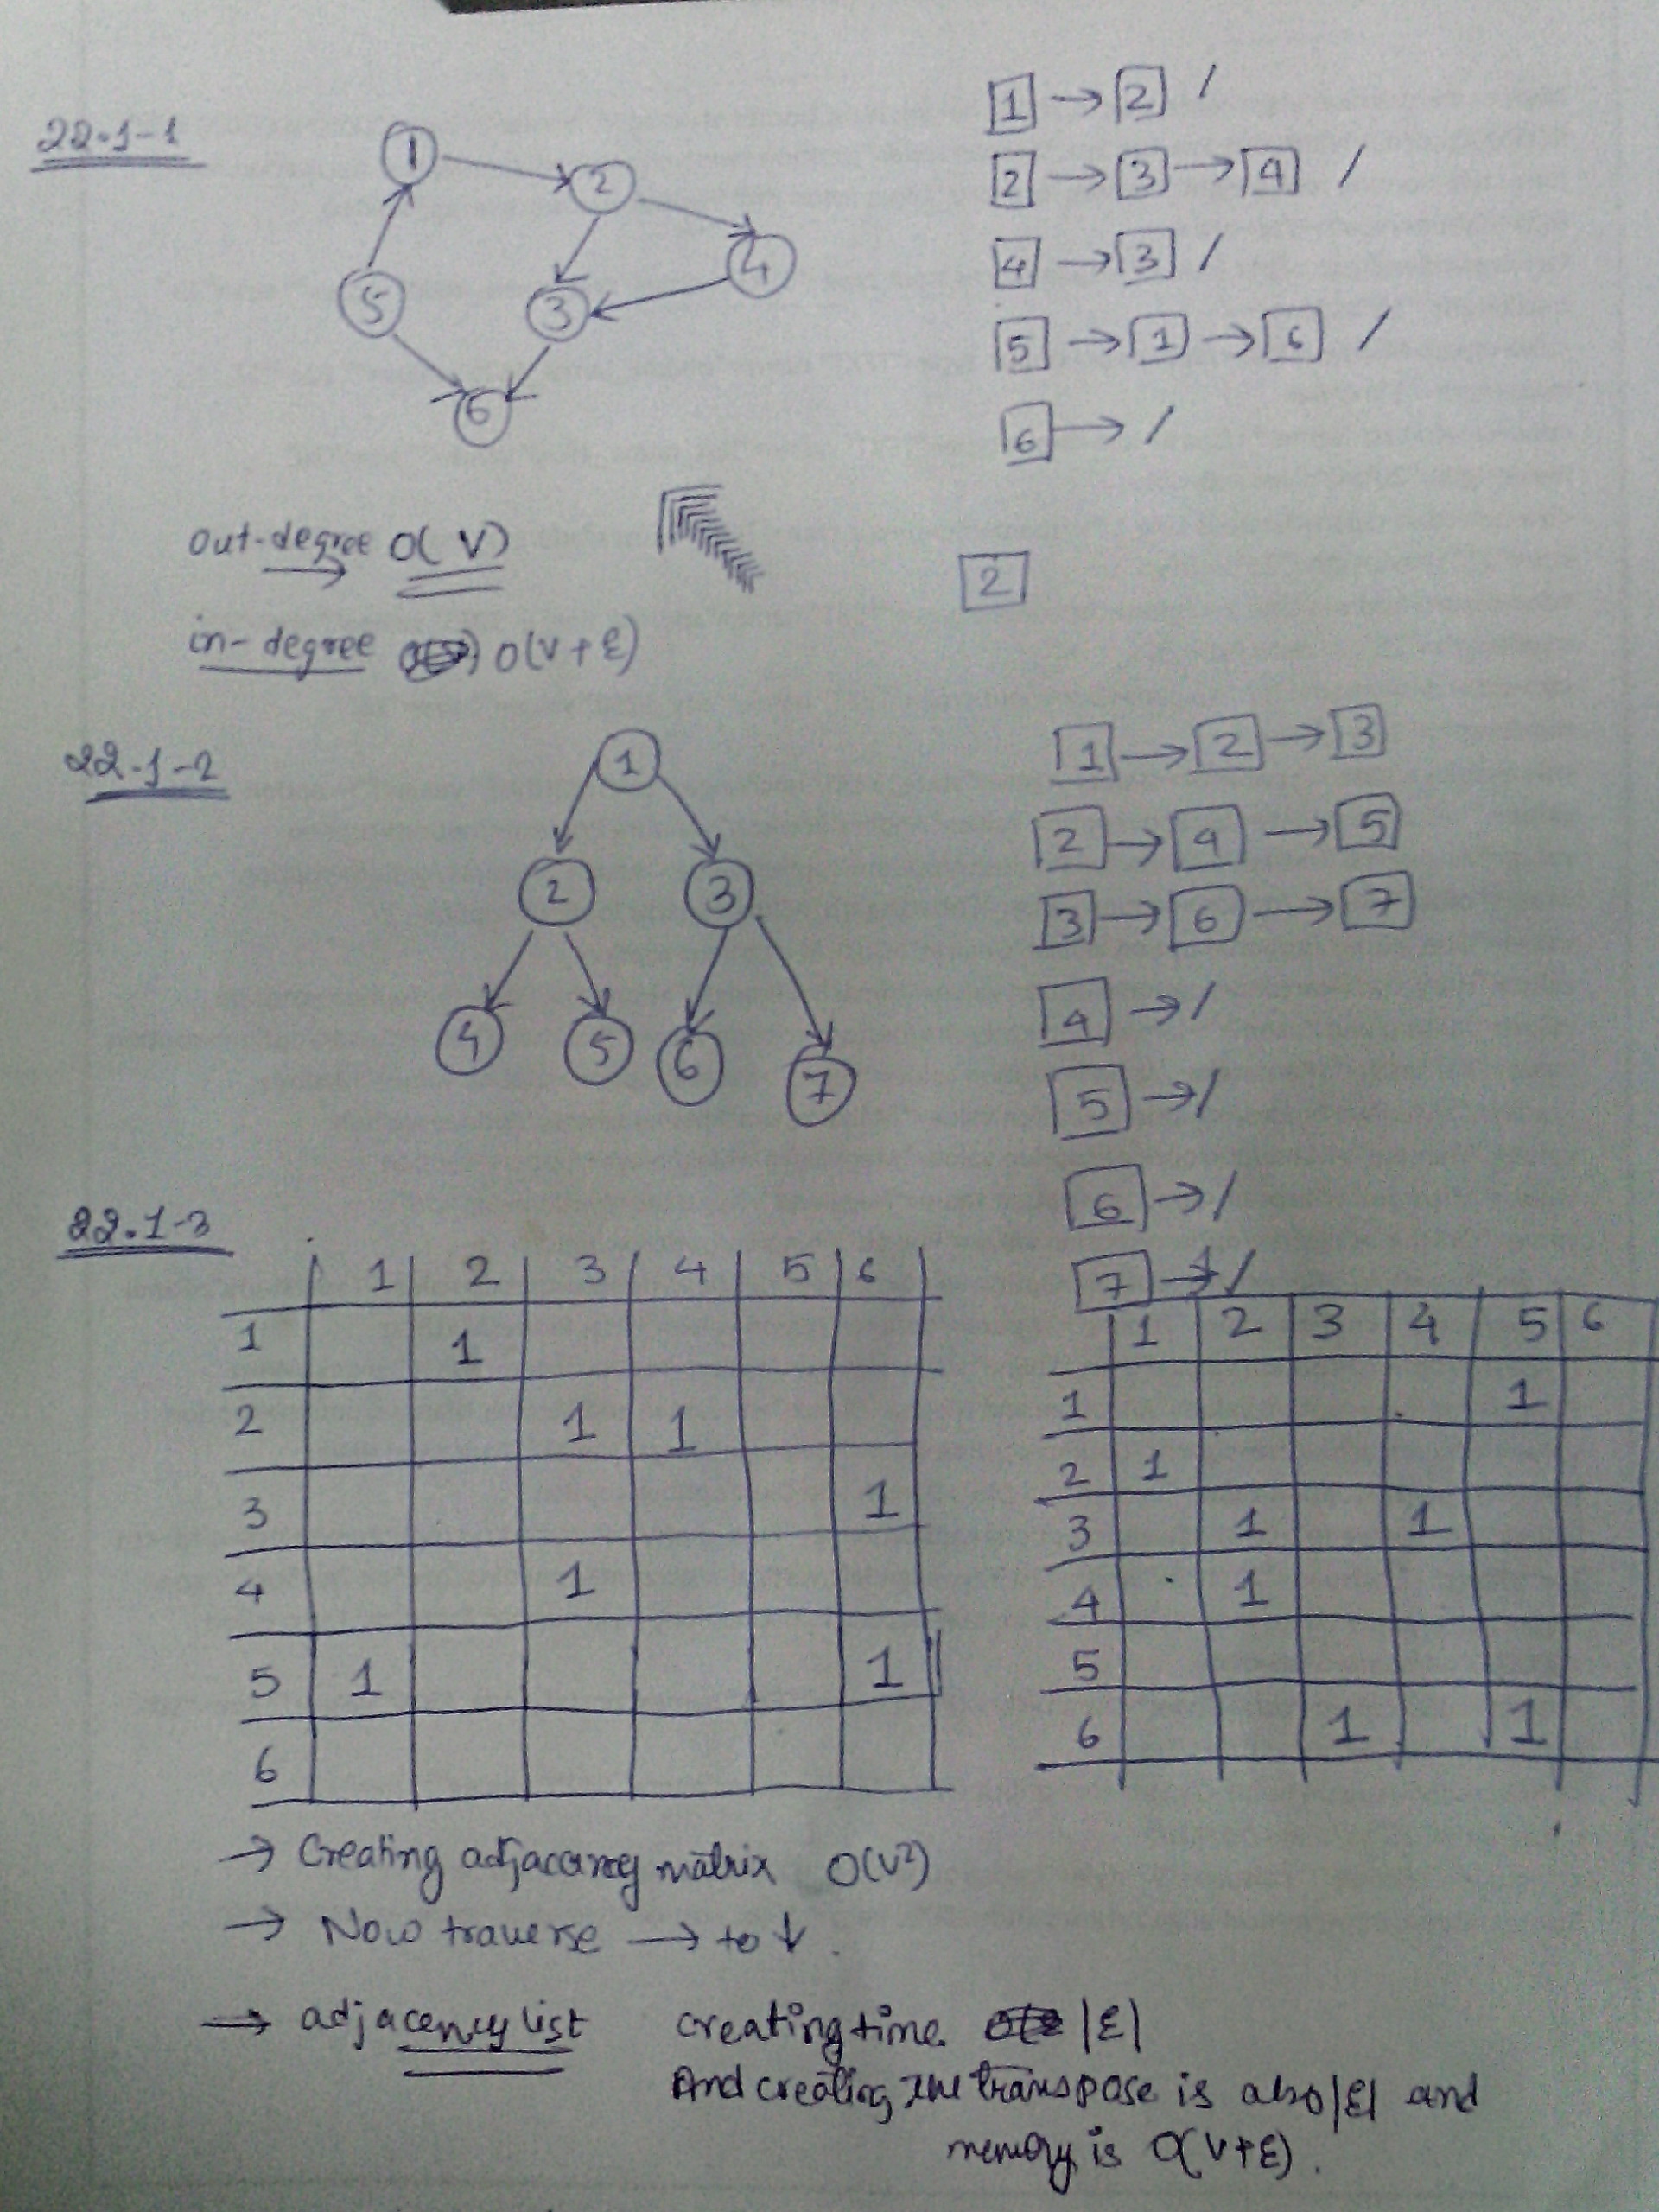 22.1-1
1 2 3 4 5 6
1 → 2 /
2 → 3 → 4 /
4 → 3 /
5 → 1 → 6 /
6 → /
out-degree O(V)
2
in-degree O(V+E)
22.1-2
1 2 3 4 5 6 7
1 → 2 → 3
2 → 4 → 5
3 → 6 → 7
4 → /
5 → /
6 → /
7 → /
22.1-3
1 2 3 4 5 6
1 1
2 1 1
3 1
4 1
5 1 1
6
1 2 3 4 5 6
1 1
2 1
3 1 1
4 1
5
6 1 1
→ Creating adjacency matrix O(V²)
→ Now traverse → to ↓.
→ adjacency list creating time |E|
And creating the transpose is also |E| and
memory is O(V+E).